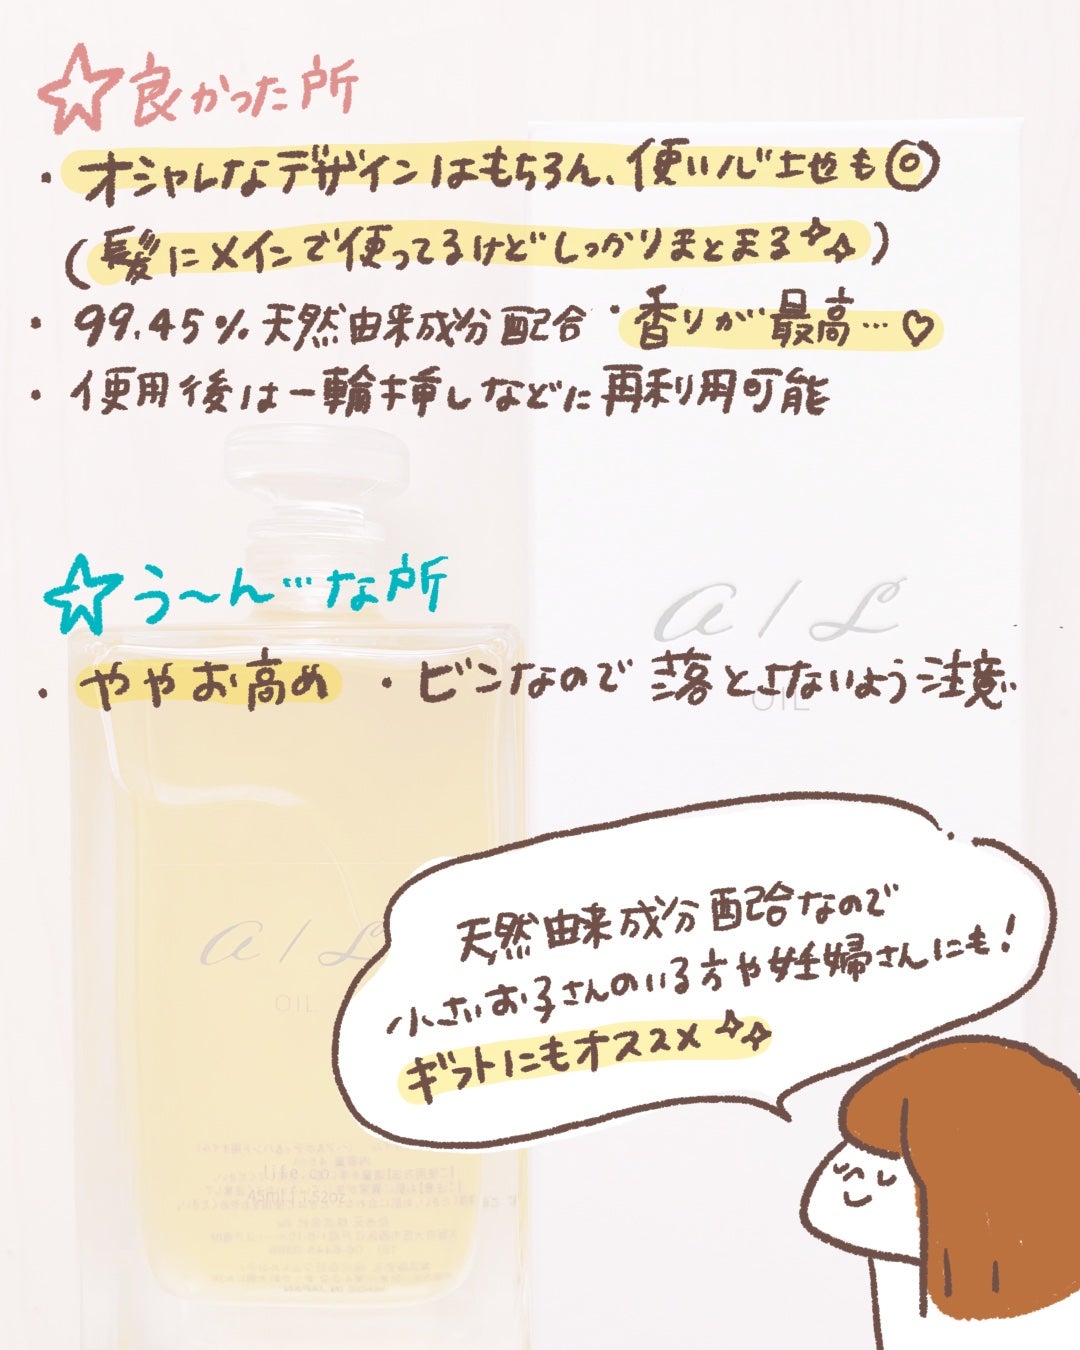 ☆良かった所
・オシャレなデザインはもちろん、使い心地も◎
(髪にメインで使ってるけどしっかりまとまる✨)
・99.45%天然由来成分配合 ・香りが最高…♡
・使用後は一輪挿しなどに再利用可能
☆う〜ん…な所
・ややお高め ・ビンなので落とさないよう注意
a/L
OIL
天然由来成分配合なので
小さいお子さんのいる方や妊婦さんにも!
ギフトにもオススメ✨
a/L
OIL
life.co
45ml 1.52oz